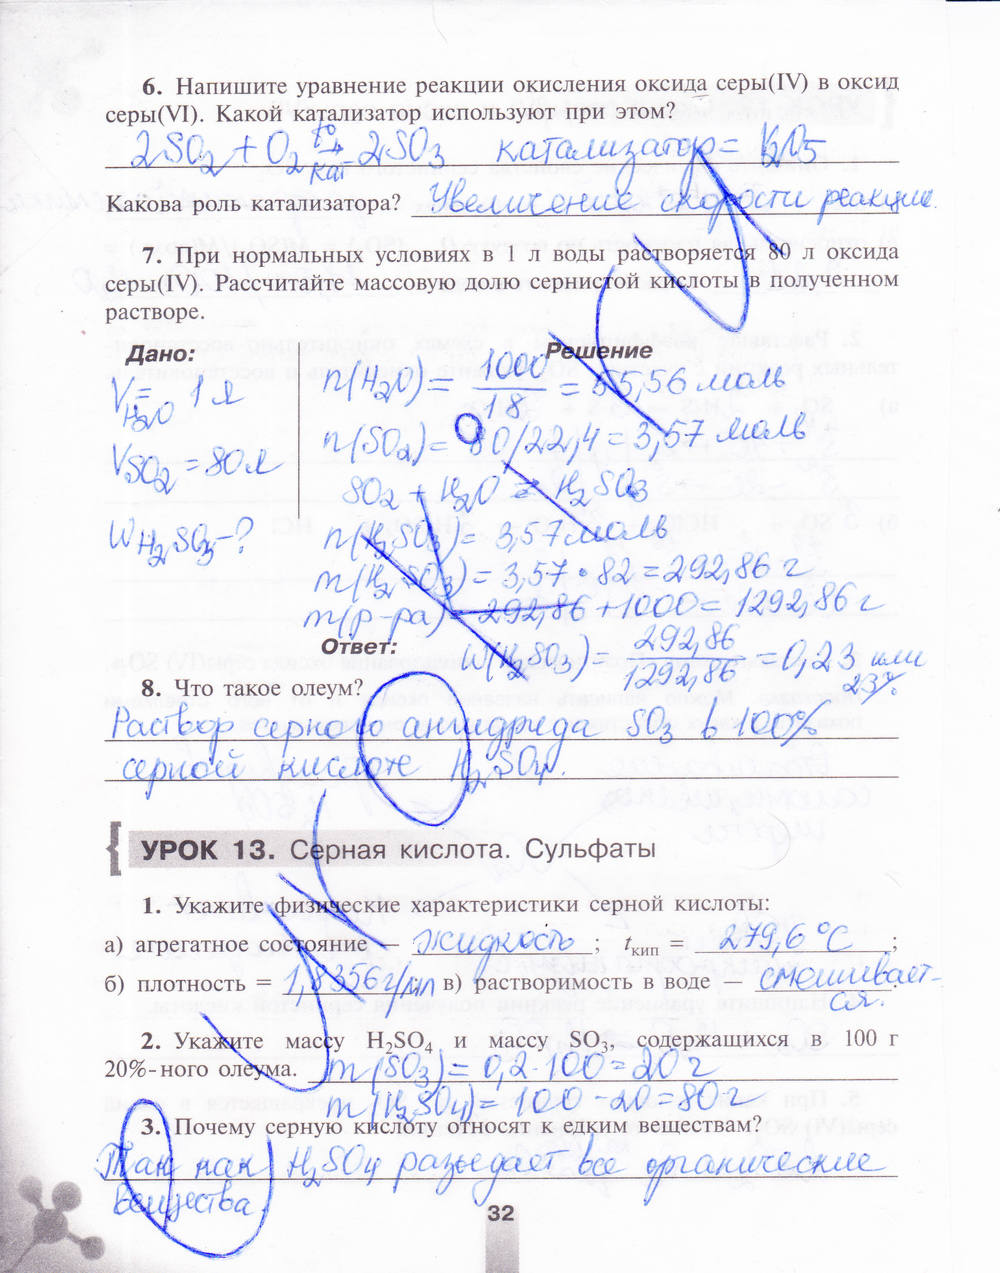 6. Напишите уравнение реакции окисления оксида серы(IV) в оксид
серы(VI). Какой катализатор используют при этом?
2SO2 + O2 t° кат 2SO3 катализатор = V2O5
Какова роль катализатора? Увеличение скорости реакции.
7. При нормальных условиях в 1 л воды растворяется 80 л оксида
серы(IV). Рассчитайте массовую долю сернистой кислоты в полученном
растворе.
Дано:
Решение
VH2O = 1 л
n(H2O) = 1000/18 = 55,56 моль
VSO2 = 80 л
n(SO2) = 80/22,4 = 3,57 моль
SO2 + H2O ⇄ H2SO3
WH2SO3 - ?
n(H2SO3) = 3,57 моль
m(H2SO3) = 3,57 • 82 = 292,86 г
m(р-ра) = 292,86 + 1000 = 1292,86 г
Ответ: W(H2SO3) = 292,86/1292,86 = 0,23 или 23%
8. Что такое олеум?
Раствор серного ангидрида SO3 в 100%
серной кислоте H2SO4.
УРОК 13. Серная кислота. Сульфаты
1. Укажите физические характеристики серной кислоты:
а) агрегатное состояние — жидкость ; tкип = 279,6 °C ;
б) плотность = 1,8356 г/мл в) растворимость в воде — смешивает-
ся.
2. Укажите массу H2SO4 и массу SO3, содержащихся в 100 г
20%-ного олеума. m(SO3) = 0,2 · 100 = 20 г
m(H2SO4) = 100 - 20 = 80 г
3. Почему серную кислоту относят к едким веществам?
Так как H2SO4 разъедает все органические
вещества.
32